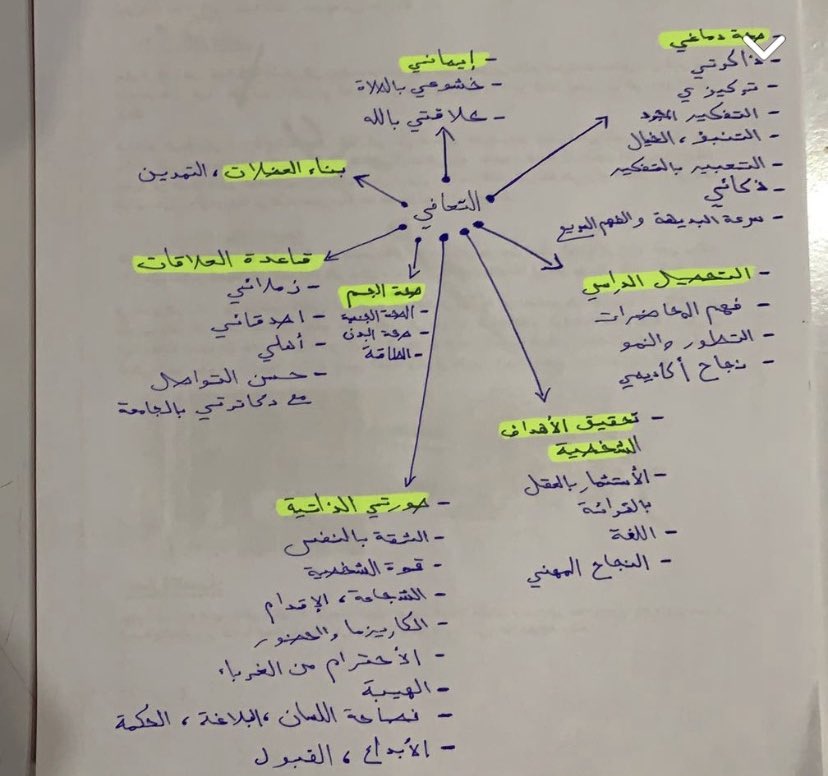 التعافي
- صحة دماغي
- ذاكرتي
- تركيزي
- التفكير المجرد
- التنبؤ ، الخيال
- التعبير بالتفكير
- ذكائي
- سرعة البديهة والفهم السريع
- إيماني
- خشوعي بالصلاة
- علاقتي بالله
بناء العضلات ، التمدين
قاعدة العلاقات
- زملائي
- اصدقائي
- أهلي
- حسن التواصل
مع دكاترتي بالجامعة
صحة الجسم
- الصحة الجنسية
- صحة البدن
- الطاقة
- التحصيل الدراسي
- فهم المحاضرات
- التطور والنمو
- نجاح أكاديمي
- تحقيق الأهداف
الشخصية
- الأستثمار بالعقل
بالقرائة
- اللغة
- النجاح المهني
- صورتي الذاتية
- الثقة بالنفس
- قوة الشخصية
- الشجاعة ، الإقدام
- الكاريزما والحضور
- الأحترام من الغرباء
- الهيبة
- فصاحة اللسان ، البلاغة ، الحكمة
- الأبداع ، القبول